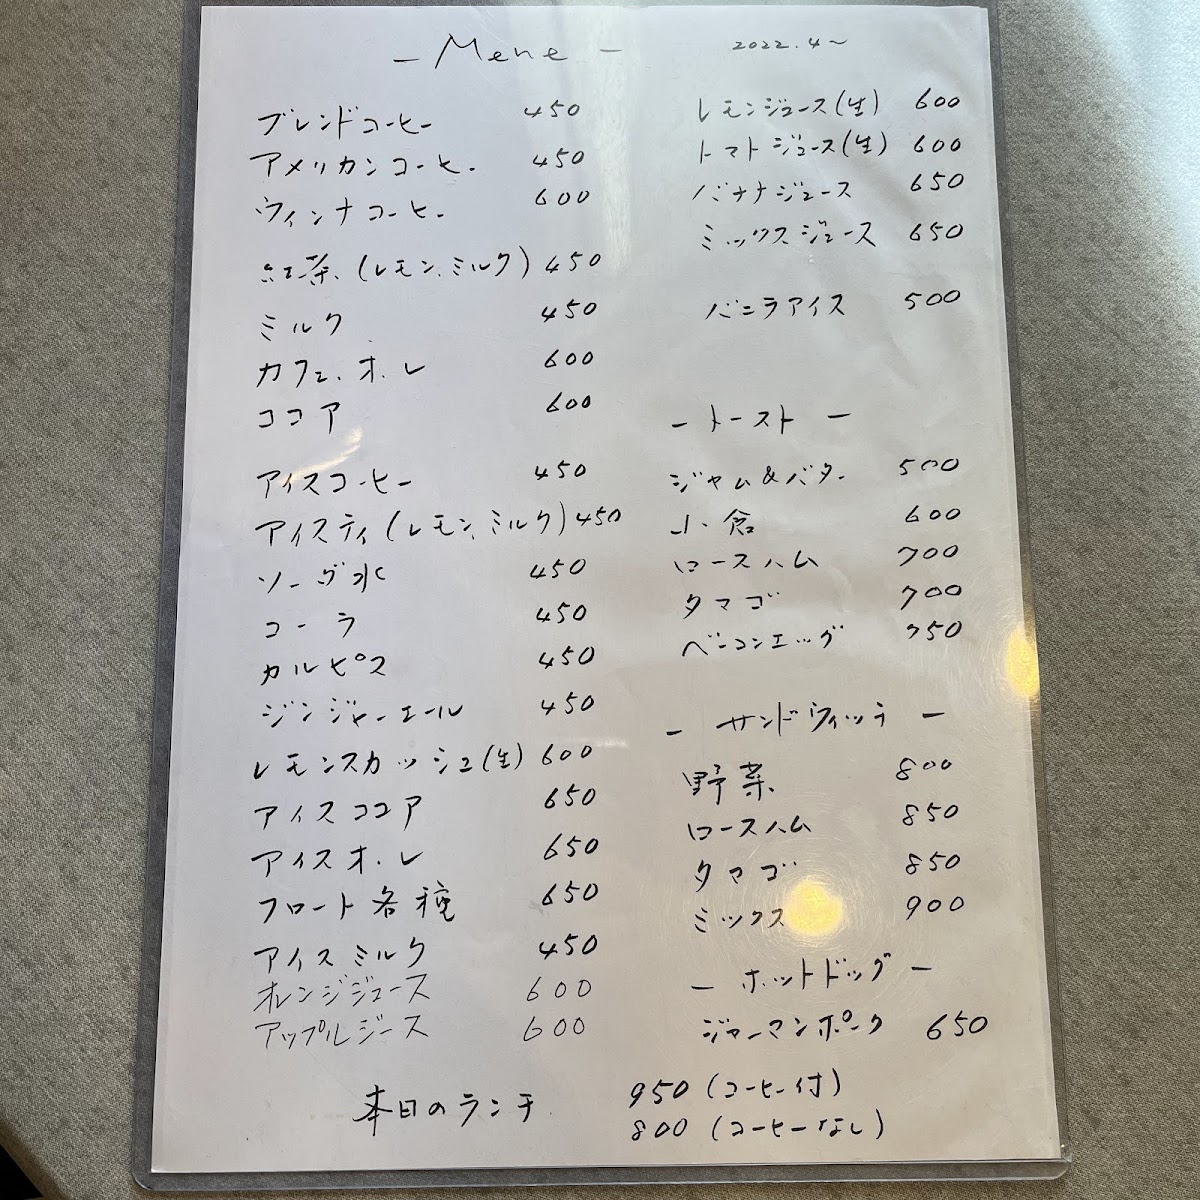 - Menu -
2022.4～
ブレンドコーヒー 450
アメリカンコーヒー 450
ウィンナコーヒー 600
紅茶(レモン、ミルク) 450
ミルク 450
カフェ・オ・レ 600
ココア 600
アイスコーヒー 450
アイスティ(レモン、ミルク) 450
ソーダ水 450
コーラ 450
カルピス 450
ジンジャーエール 450
レモンスカッシュ(生) 600
アイスココア 650
アイスオ・レ 650
フロート各種 650
アイスミルク 450
オレンジジュース 600
アップルジース 600
レモンジュース(生) 600
トマトジュース(生) 600
バナナジュース 650
ミックスジュース 650
バニラアイス 500
- トースト -
ジャム&バター 500
小倉 600
ロースハム 700
タマゴ 700
ベーコンエッグ 750
- サンドウィッチ -
野菜 800
ロースハム 850
タマゴ 850
ミックス 900
- ホットドッグ -
ジャーマンポーク 650
本日のランチ 950(コーヒー付)
800(コーヒーなし)